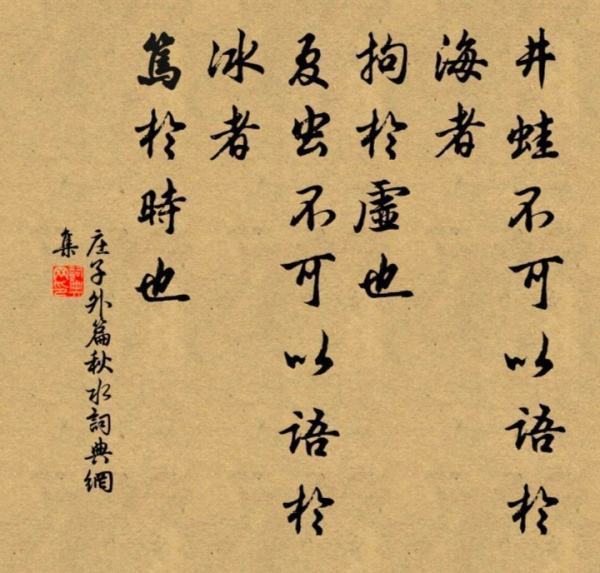 井蛙不可以语於
海者
拘於虚也
夏虫不可以语於
冰者
笃於時也
庄子外篇秋水詞典網
集